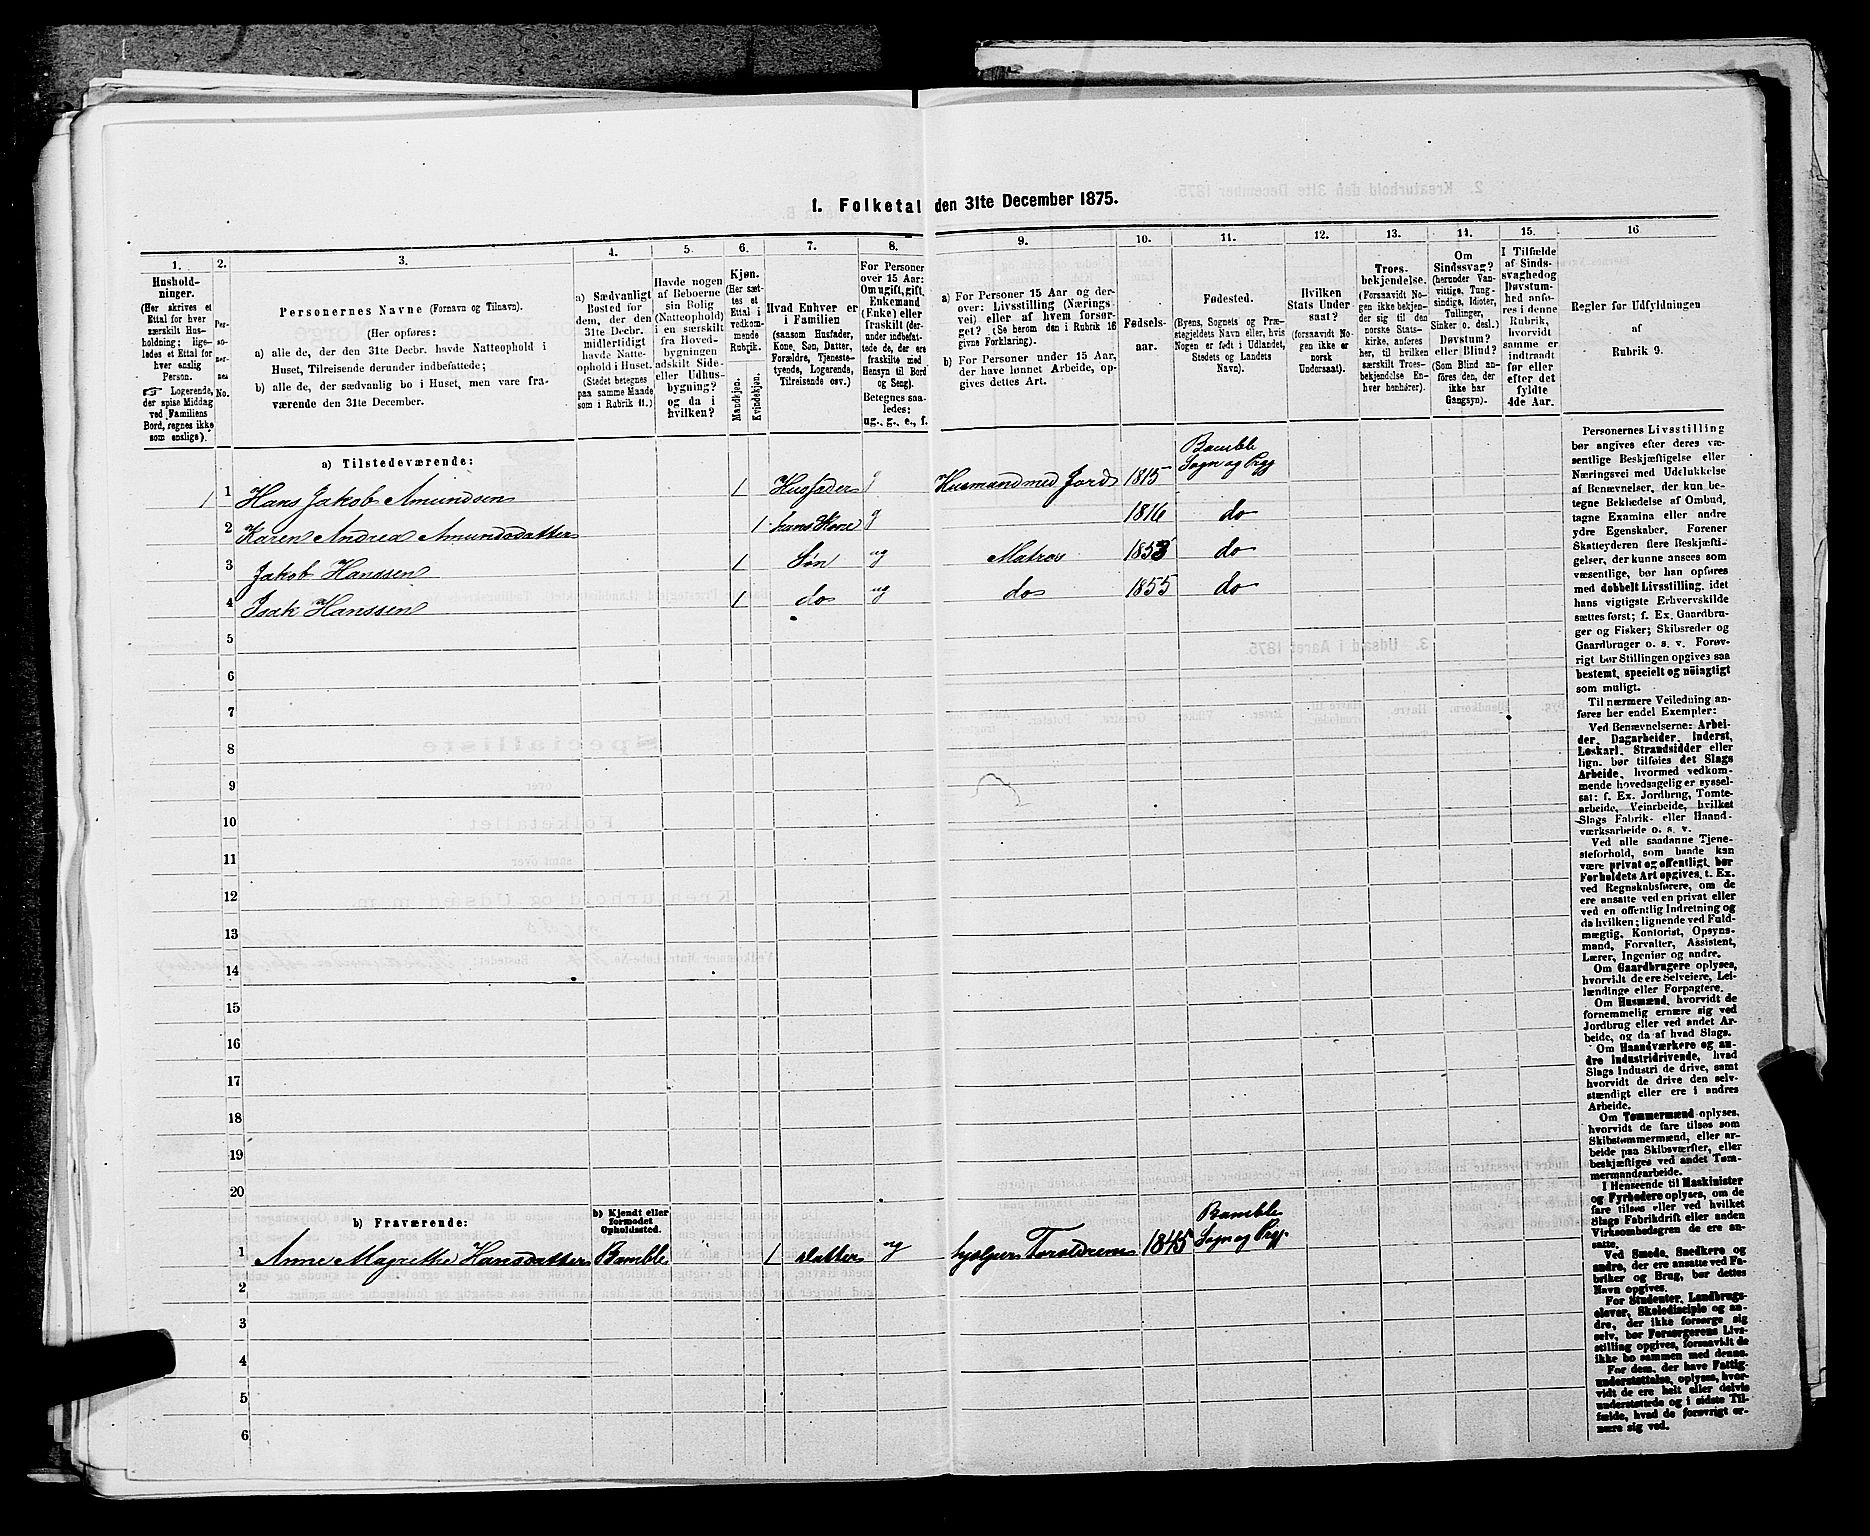 1. Folketal den 31te December 1875.
1.
Hushold-
ninger.
(Her skrives et
Ettal for hver
særskilt Hus-
holdning; lige-
ledes et Ettal for
hver enslig
Person.
☞ Logerende,
der spise Middag
ved Familiens
Bord, regnes ikke
som enslige).
2.
Per-
so-
ner-
nes
No.
3.
Personernes Navne (Fornavn og Tilnavn).
(Her opføres:
a) alle de, der den 31te Decbr. havde Natteophold i
Huset, Tilreisende derunder indbefattede;
b) alle de, der sædvanlig bo i Huset, men vare fra-
værende den 31te December.
4.
a) Sædvanligt
Bosted for
dem, der den
31te Decbr.
midlertidigt
havde Natte-
ophold i Huset.
(Stedet betegnes
paa samme Maade
som i Rubrik 11.)
5.
Havde nogen
af Beboerne
sin Bolig
(Natteophold)
i en særskilt
fra Hoved-
bygningen
adskilt Side-
eller Udhus-
bygning?
og da i
hvilken?
6.
Kjøn.
(Her sæt-
tes et
Ettal i
vedkom-
mende
Rubrik.
Mandkjøn.
Kvindekjøn.
7.
Hvad Enhver er
i Familien
(saasom Husfader,
Kone, Søn, Datter,
Forældre, Tjeneste-
tyende, Logerende,
Tilreisende osv.)
8.
For Personer
over 15 Aar:
Om ugift, gift,
Enkemand
(Enke) eller
fraskilt (der-
under indbefat-
tede de, der ere
fraskilte med
Hensyn til Bord
og Seng).
Betegnes saa-
ledes:
ug., g., e., f.
9.
a) For Personer 15 Aar og der-
over: Livsstilling (Nærings-
vei) eller af hvem forsør-
get? (Se herom den i Rubrik 16
givne Forklaring).
b) For Personer under 15 Aar,
der have lønnet Arbeide, op-
gives dettes Art.
10.
Fødsels-
aar.
11.
Fødested.
(Byens, Sognets og Præ-
stegjeldets Navn eller, hvis
Nogen er født i Udlandet,
Stedets og Landets
Navn).
12.
Hvilken
Stats Under-
saat?
(forsaavidt No-
gen ikke er
norsk
Undersaat).
13.
Troes-
bekjendelse.
(Forsaavidt No-
gen ikke bekjen-
der sig til den
norske Stats-
kirke, anføres
her, til hvilken
særskilt Troes-
bekjendelse En-
hver henhører).
14.
Om
Sindssvag?
(herunder Van-
vittige, Tung-
sindige, Idioter,
Tullinger,
Sinker o. desl.)
Døvstum?
eller Blind?
(Som Blind an-
føres den, der
ikke har
Gangsyn).
15.
I Tilfælde
af Sinds-
svaghed og
Døvstum-
hed anfø-
res i denne
Rubrik,
hvorvidt
samme er
indtraadt
før eller
efter det
fyldte
4de Aar.
16
Regler for Udfyldningen
af
Rubrik 9.
a) Tilstedeværende:
Bamble
1 1 Hans Jakob Amundsen 1 Husfader g Husmand med Jord 1815 Sogn og Prgj
2 Karen Andrea Amundsdatter 1 hans Kone g 1816 do
3 Jakob Hanssen 1 Søn ug Matros 1853 do
4 Isak Hanssen 1 do ug do 1855 do
5
6
7
8
9
10
11
12
13
14
15
16
17
18
19
20
b) Fraværende:
b) Kjendt eller
formodet
Opholdssted.
Bamble
1 Anne Magrethe Hansdatter Bamble 1 datter ug hjelper Foreldrene 1845 Sogn og Prgj.
2
3
4
5
6
Personernes Livsstilling
bør angives efter deres væ-
sentlige Beskjæftigelse eller
Næringsvei med Udelukkelse
af Benævnelser, der kun be-
tegne Beklædelse af Ombud,
tagne Examina eller andre
ydre Egenskaber. Forener
Skatteyderen flere Beskjæfti-
gelser, der kunne ansees som
væsentlige, bør han opføres
med dobbelt Livsstilling, idet
hans vigtigste Erhvervskilde
sættes først; f. Ex. Gaardbru-
ger og Fisker; Skibsreder og
Gaardbruger o. s. v. Forøv-
rigt bør Stillingen opgives saa
bestemt, specielt og nöiagtigt
som muligt.
Til nærmere Veiledning an-
føres her endel Exempler:
Ved Benævnelserne: Arbei-
der, Dagarbeider, Inderst,
Løskarl, Strandsidder eller
lign. bør tilføies det Slags
Arbeide, hvormed vedkom-
mende hovedsagelig er syssel-
sat: f. Ex. Jordbrug, Tømte-
arbeide, Veiarbeide, hvilket
Slags Fabrik- eller Haand-
værksarbeide o. s. v.
Ved alle saadanne Tjene-
steforhold, som baade kan
være privat og offentligt, bør
Forholdets Art opgives, t. Ex.
ved Regnskabsførere, om de
ere ansatte ved en privat eller
ved en offentlig Indretning og
da hvilken; lignende ved Fuld-
mægtig, Kontorist, Opsyns-
mand, Forvalter, Assistent,
Lærer, Ingeniør og andre.
Om Gaardbrugere oplyses,
hvorvidt de ere Selveiere, Lei-
lændinge eller Forpagtere.
Om Husmænd, hvorvidt de
fornemmelig ernære sig ved
Jordbrug eller ved andet Ar-
beide, og da af hvad Slags.
Om Haandværkere og an-
dre Industridrivende, hvad
Slags Industri de drive, samt
hvorvidt de drive den selv-
stændigt eller ere i andres
Arbeide.
Om Tømmermænd oplyses,
hvorvidt de fare tilsøs som
Skibstømmermænd, eller ar-
beide paa Skibsværfter, eller
beskjæftiges ved andet Tøm-
mermandsarbeide.
I Henseende til Maskinister
og Fyrbødere oplyses, om de
fare tilsøs eller ved hvilket
Slags Fabrikdrift eller anden
Virksomhedsgren de ere an-
satte.
Ved Smede, Snedkere og
andre, der ere ansatte ved Fa-
briker og Brug, bør dettes
Navn opgives.
For Studenter, Landbrugs-
elever, Skoledisciple og an-
dre, der ikke forsørge sig
selv, bør Forsørgerens Livs-
stilling opgives, forsaavidt de
ikke bo sammen med denne.
For dem, der have Fattig-
understøttelse, oplyses, hvor-
vidt de ere helt eller delvis
understøttede og i sidste Til-
fælde, hvad de forøvrigt er-
nære sig ved.